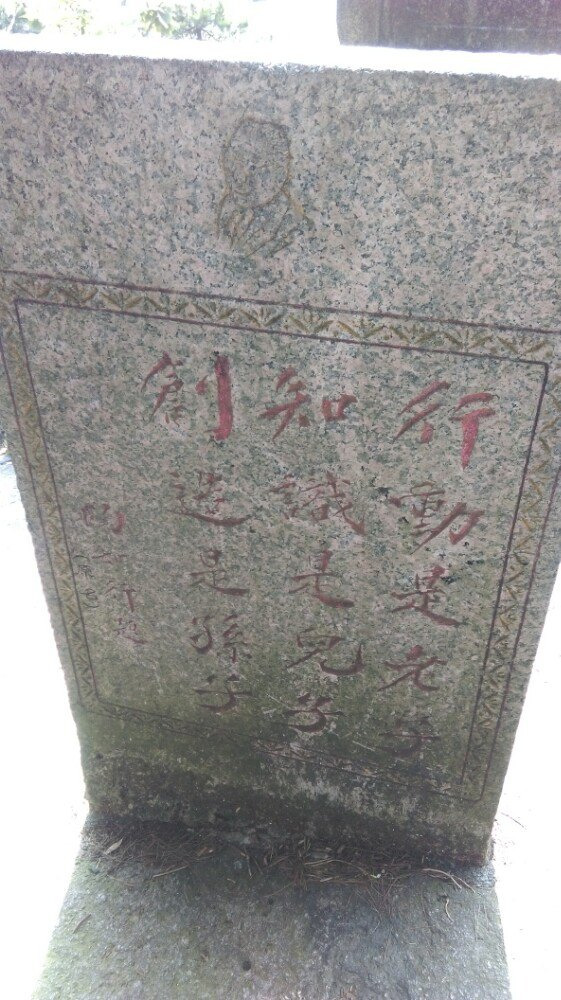 行動是老子
知識是兒子
創造是孫子
陶行題